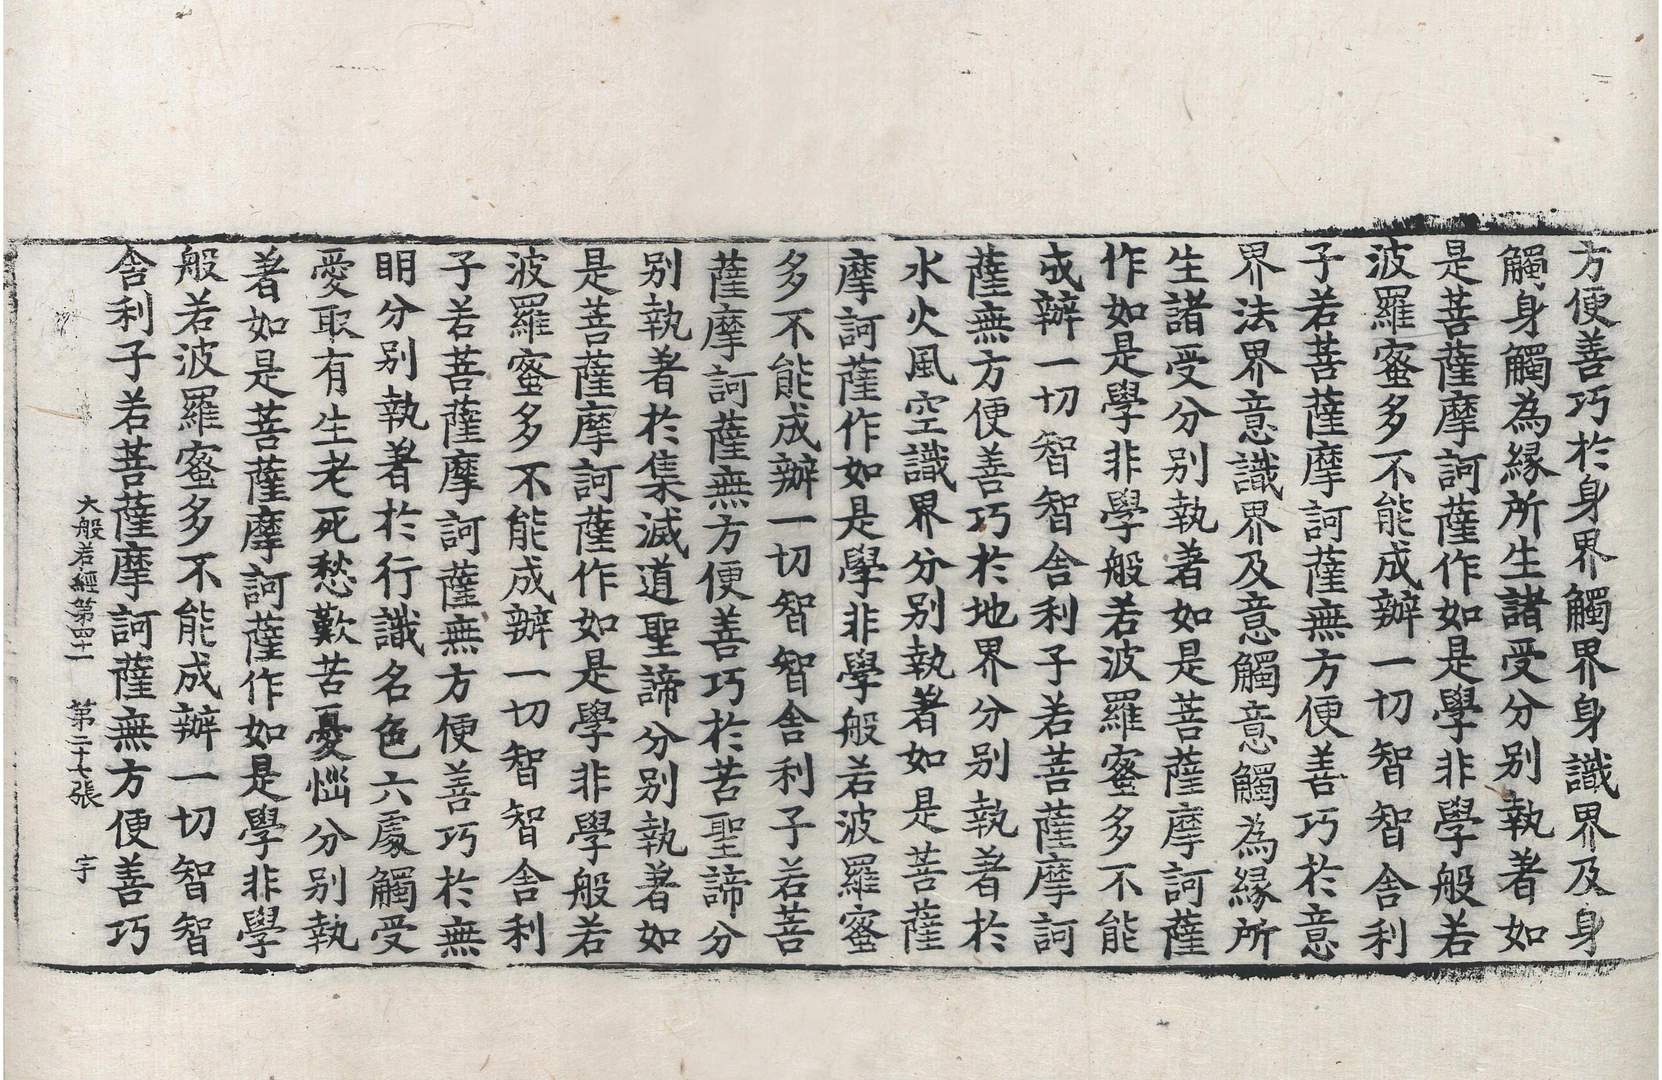 方便善巧於身界觸界身識界及身
觸身觸為緣所生諸受分別執著如
是菩薩摩訶薩作如是學非學般若
波羅蜜多不能成辦一切智智舍利
子若菩薩摩訶薩無方便善巧於意
界法界意識界及意觸意觸為緣所
生諸受分別執著如是菩薩摩訶薩
作如是學非學般若波羅蜜多不能
成辦一切智智舍利子若菩薩摩訶
薩無方便善巧於地界分別執著於
水火風空識界分別執著如是菩薩
摩訶薩作如是學非學般若波羅蜜
多不能成辦一切智智舍利子若菩
薩摩訶薩無方便善巧於苦聖諦分
別執著於集滅道聖諦分別執著如
是菩薩摩訶薩作如是學非學般若
波羅蜜多不能成辦一切智智舍利
子若菩薩摩訶薩無方便善巧於無
明分別執著於行識名色六處觸受
愛取有生老死愁歎苦憂惱分別執
著如是菩薩摩訶薩作如是學非學
般若波羅蜜多不能成辦一切智智
舍利子若菩薩摩訶薩無方便善巧
大般若經第四十一 第二十七張 宇